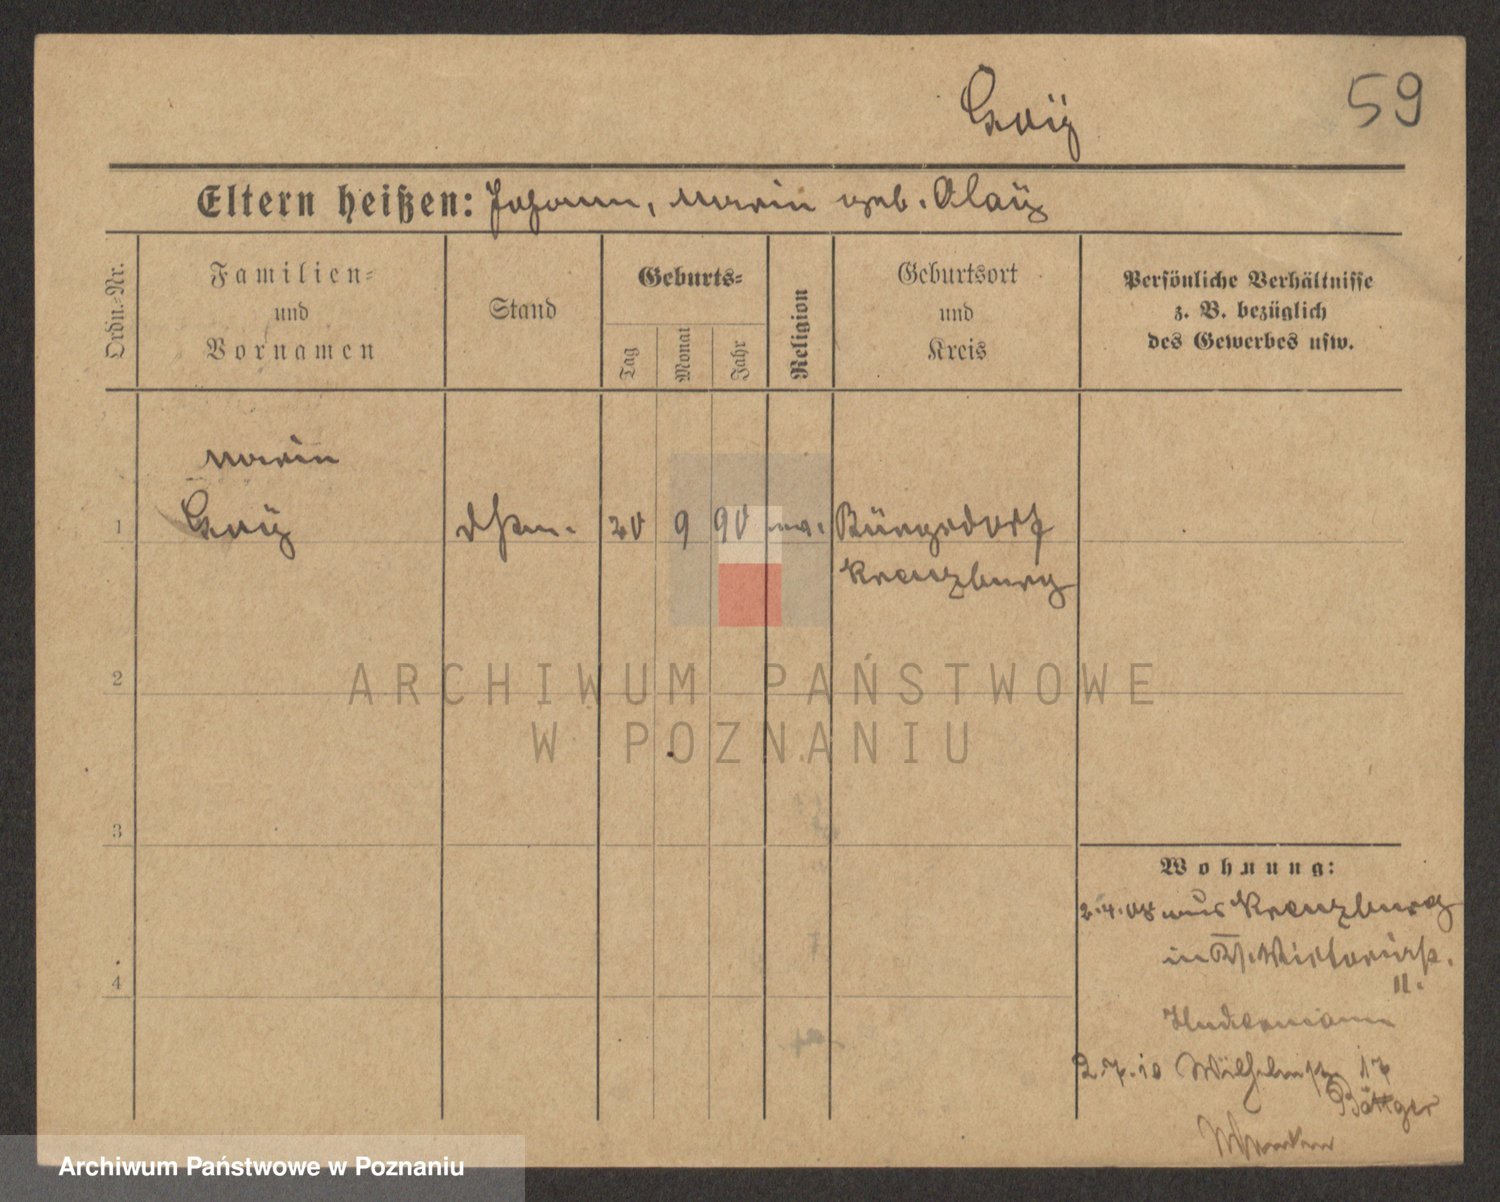 59
Eltern heißen: Johann, Marie geb.
Ordn.-Nr.
Familien-
und
Vornamen
Stand
Geburts-
Tag
Monat
Jahr
Religion
Geburtsort
und
Kreis
Persönliche Verhältnisse
z. B. bezüglich
des Gewerbes usw.
Marie
1
20 9 90 Bürgsdorf
Kreuzburg
2
ARCHIWUM PAŃSTWOWE
W POZNANIU
3
4
Wohnung:
2.4.08 aus Kreuzburg
in
11.
2.7.10 Wilhelmstr. 17
Böttger
Archiwum Państwowe w Poznaniu